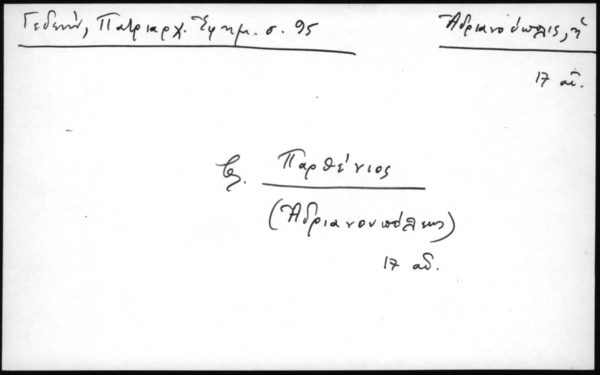 Γεδεών, Πατριαρχ. Ἐφημ. σ. 95
Ἀδριανούπολις, ἡ
17 αἰ.
βλ. Παρθένιος
(Ἀδριανουπόλεως)
17 αἰ.